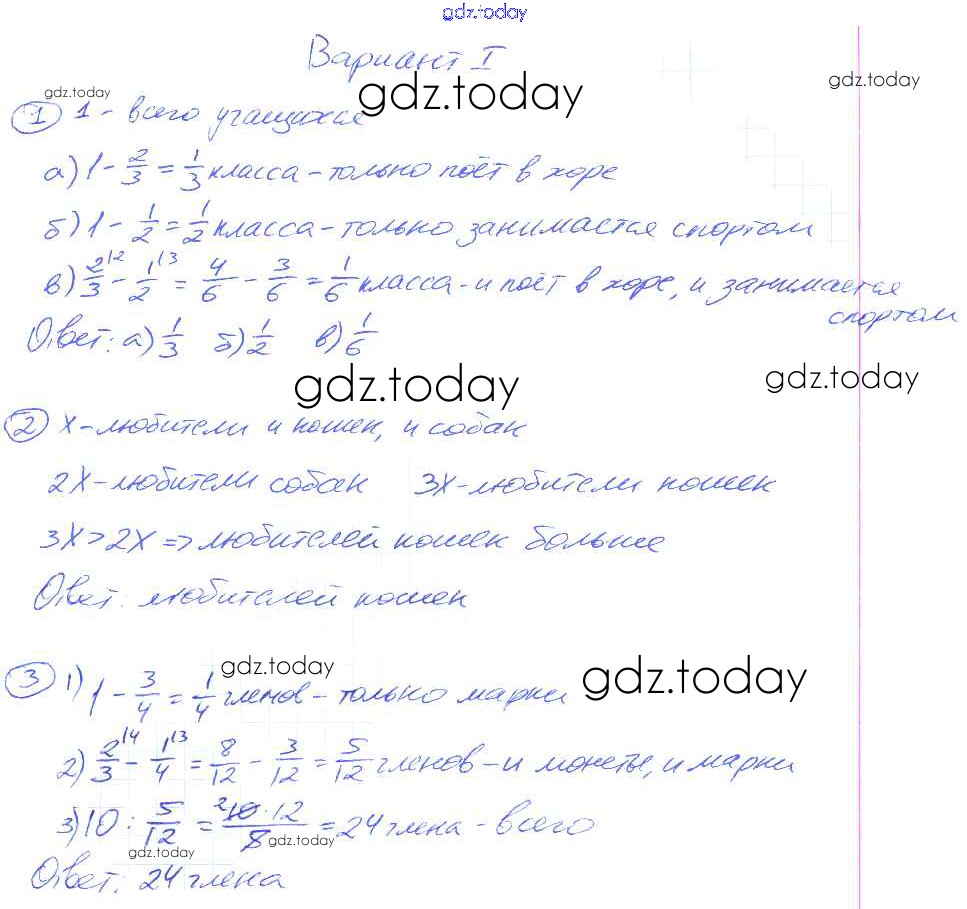 gdz.today
Вариант I
gdz.today
gdz.today
gdz.today
① 1 - всего учащихся
а) 1 - 2/3 = 1/3 класса - только поёт в хоре
б) 1 - 1/2 = 1/2 класса - только занимается спортом
в) 2/3 ^{\2} - 1/2 ^{\3} = 4/6 - 3/6 = 1/6 класса - и поёт в хоре, и занимается
спортом
Ответ: а) 1/3 б) 1/2 в) 1/6
gdz.today
gdz.today
② x - любители и кошек, и собак
2x - любители собак 3x - любители кошек
3x > 2x => любителей кошек больше
Ответ: любителей кошек
gdz.today
gdz.today
③ 1) 1 - 3/4 = 1/4 членов - только марки
2) 2/3 ^{\4} - 1/4 ^{\3} = 8/12 - 3/12 = 5/12 членов - и монеты, и марки
3) 10 : 5/12 = ²10·12/5 = 24 члена - всего
gdz.today
gdz.today
Ответ: 24 члена